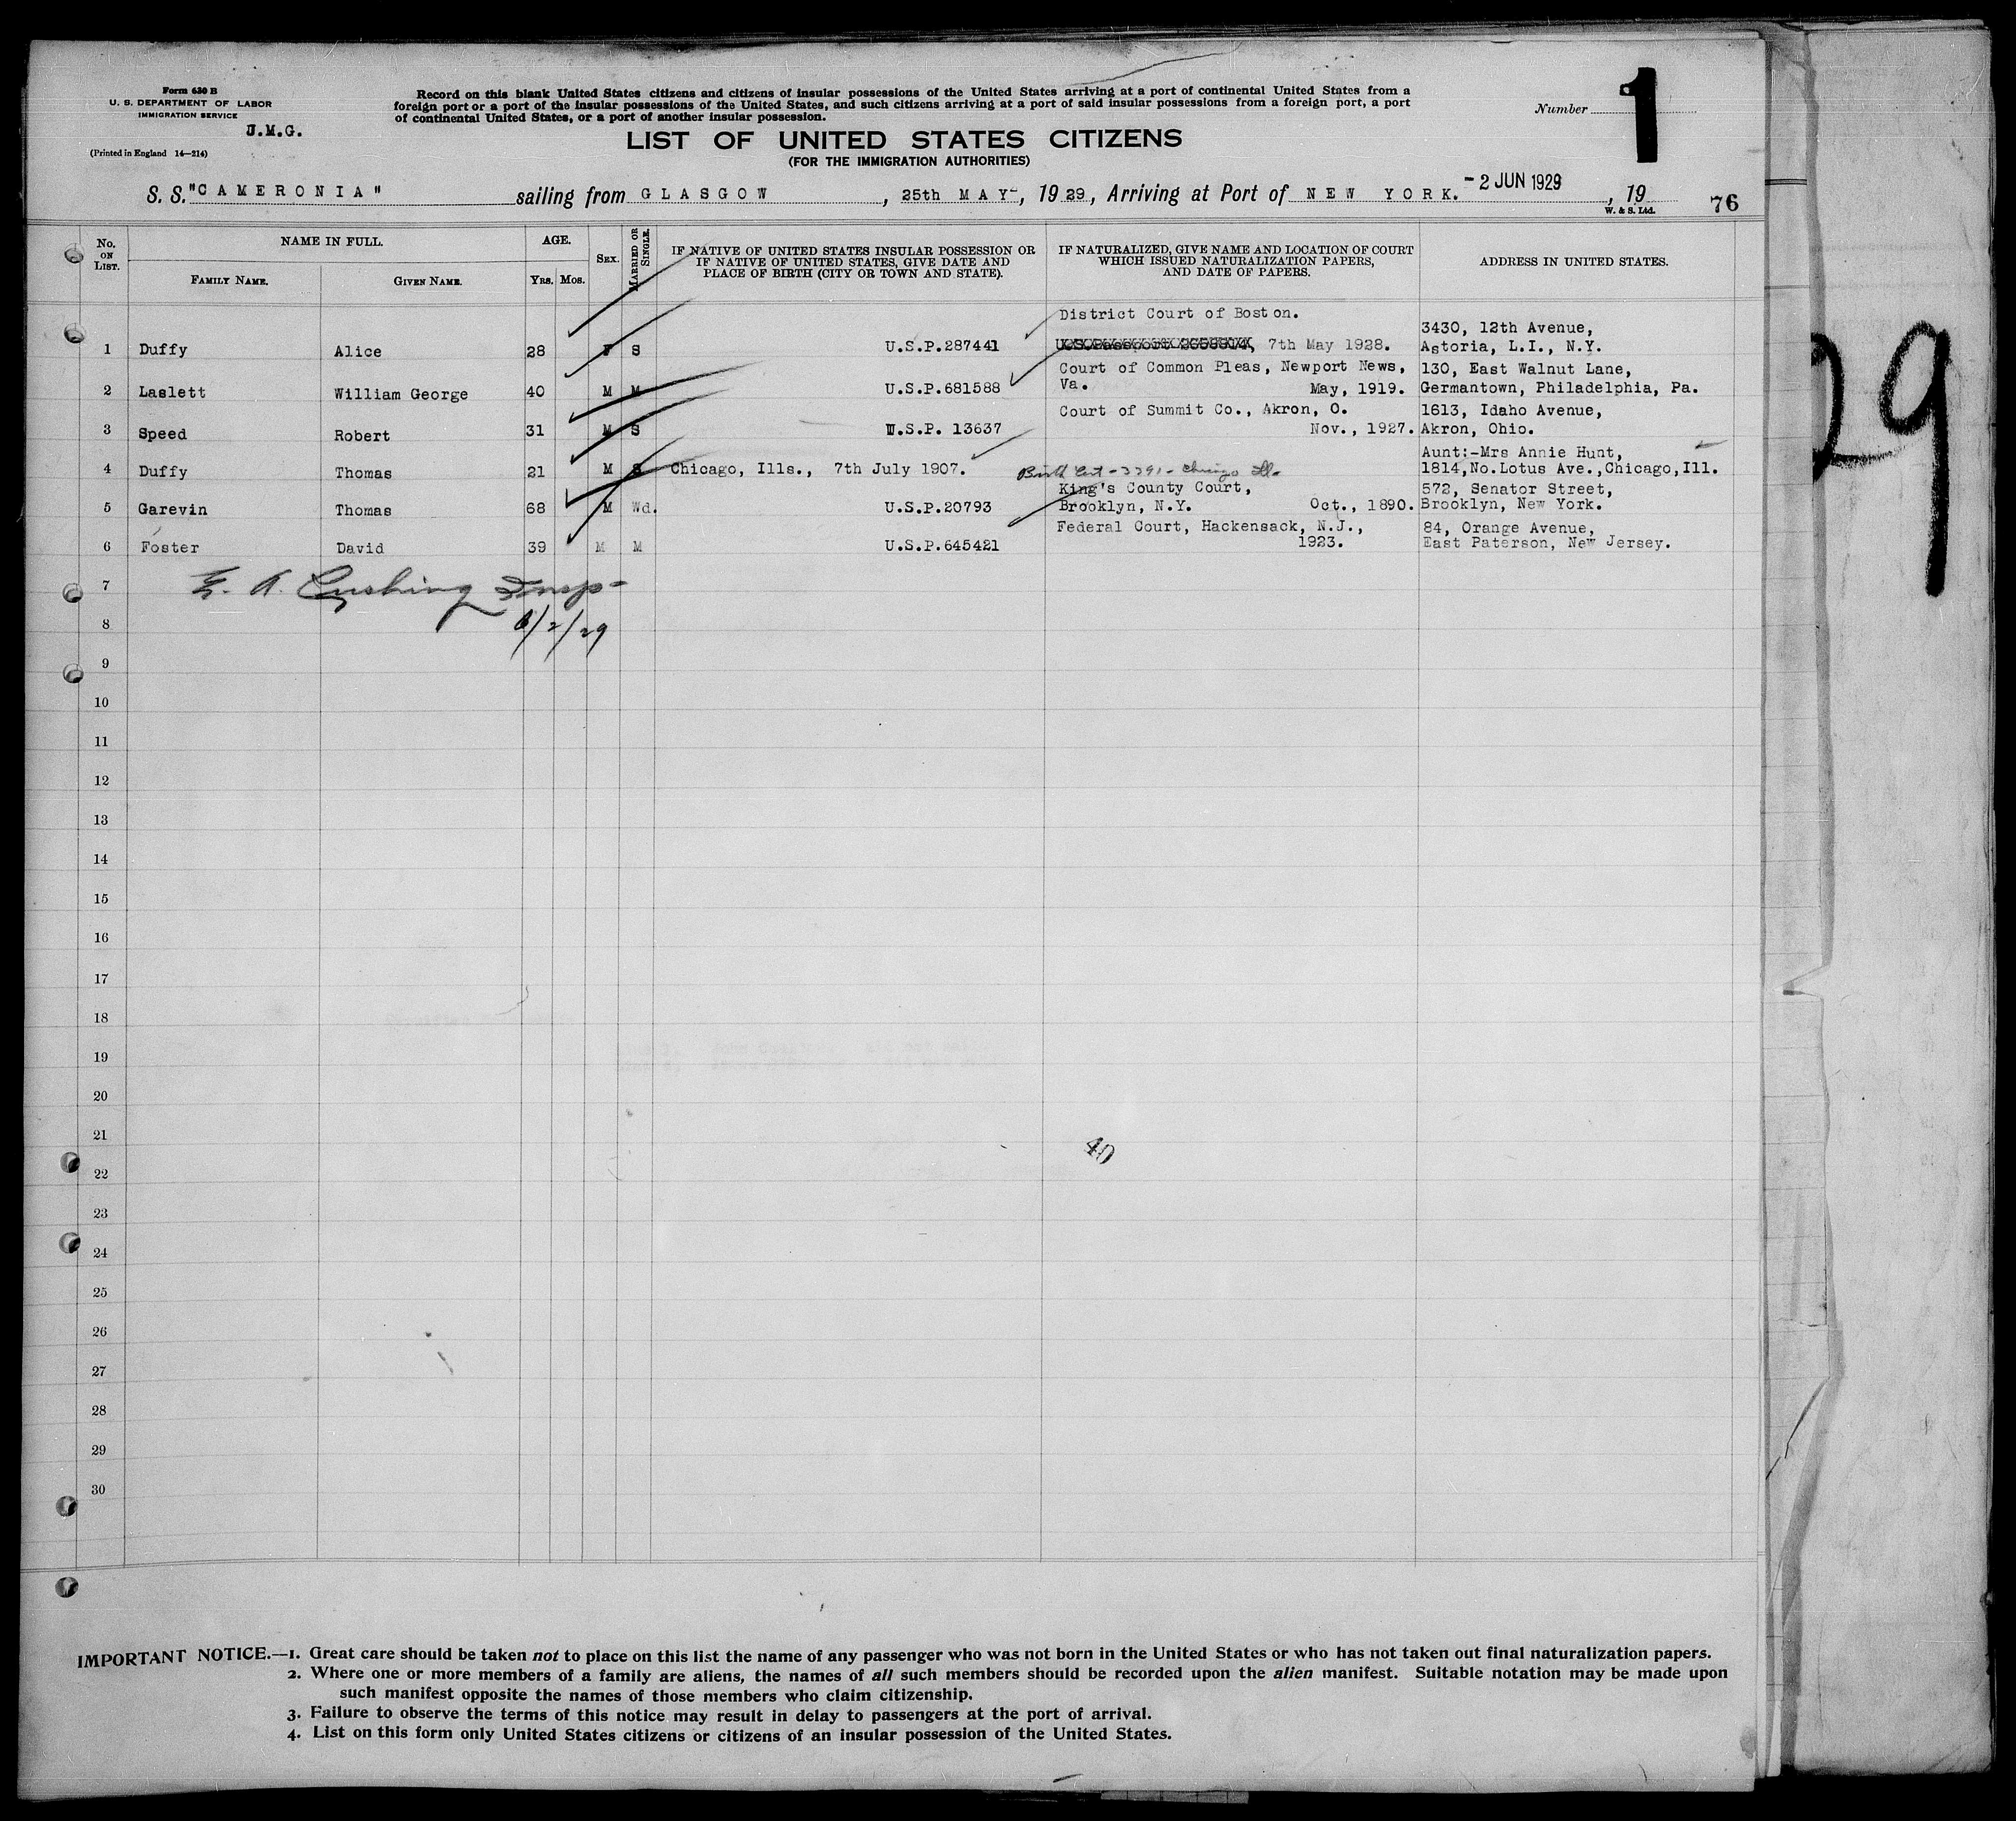 Form 630 B
U. S. DEPARTMENT OF LABOR
IMMIGRATION SERVICE
J.M.G.
(Printed in England 14—214)
Record on this blank United States citizens and citizens of insular possessions of the United States arriving at a port of continental United States from a
foreign port or a port of the insular possessions of the United States, and such citizens arriving at a port of said insular possessions from a foreign port, a port
of continental United States, or a port of another insular possession.
Number 1
LIST OF UNITED STATES CITIZENS
(FOR THE IMMIGRATION AUTHORITIES)
S. S. "CAMERONIA" sailing from GLASGOW, 25th MAY, 1929, Arriving at Port of NEW YORK. - 2 JUN 1929, 19
W. & S. Ltd.
76
No. ON LIST. NAME IN FULL. AGE. SEX. MARRIED OR SINGLE. IF NATIVE OF UNITED STATES INSULAR POSSESSION OR IF NATIVE OF UNITED STATES, GIVE DATE AND PLACE OF BIRTH (CITY OR TOWN AND STATE). IF NATURALIZED, GIVE NAME AND LOCATION OF COURT WHICH ISSUED NATURALIZATION PAPERS, AND DATE OF PAPERS. ADDRESS IN UNITED STATES.
FAMILY NAME. GIVEN NAME. YRS. MOS.
District Court of Boston.
3430, 12th Avenue,
1 Duffy Alice 28 F S U.S.P.287441 7th May 1928. Astoria, L.I., N.Y.
Court of Common Pleas, Newport News, 130, East Walnut Lane,
2 Laslett William George 40 M M U.S.P.681588 Va. May, 1919. Germantown, Philadelphia, Pa.
Court of Summit Co., Akron, O. 1613, Idaho Avenue,
3 Speed Robert 31 M S U.S.P. 13637 Nov., 1927. Akron, Ohio.
Aunt:-Mrs Annie Hunt,
4 Duffy Thomas 21 M S Chicago, Ills., 7th July 1907. Birth Cert - 3791 - Chicago Ill. 1814,No.Lotus Ave.,Chicago,Ill.
King's County Court, 572, Senator Street,
5 Garevin Thomas 68 M Wd. U.S.P.20793 Brooklyn, N.Y. Oct., 1890. Brooklyn, New York.
Federal Court, Hackensack, N.J., 84, Orange Avenue,
6 Foster David 39 M M U.S.P.645421 1923. East Paterson, New Jersey.
7 E. A. Cushing Insp-
8 6/2/29
9
10
11
12
13
14
15
16
17
18
19
20
21
40
22
23
24
25
26
27
28
29
30
IMPORTANT NOTICE.—1. Great care should be taken not to place on this list the name of any passenger who was not born in the United States or who has not taken out final naturalization papers.
2. Where one or more members of a family are aliens, the names of all such members should be recorded upon the alien manifest. Suitable notation may be made upon
such manifest opposite the names of those members who claim citizenship.
3. Failure to observe the terms of this notice may result in delay to passengers at the port of arrival.
4. List on this form only United States citizens or citizens of an insular possession of the United States.
29